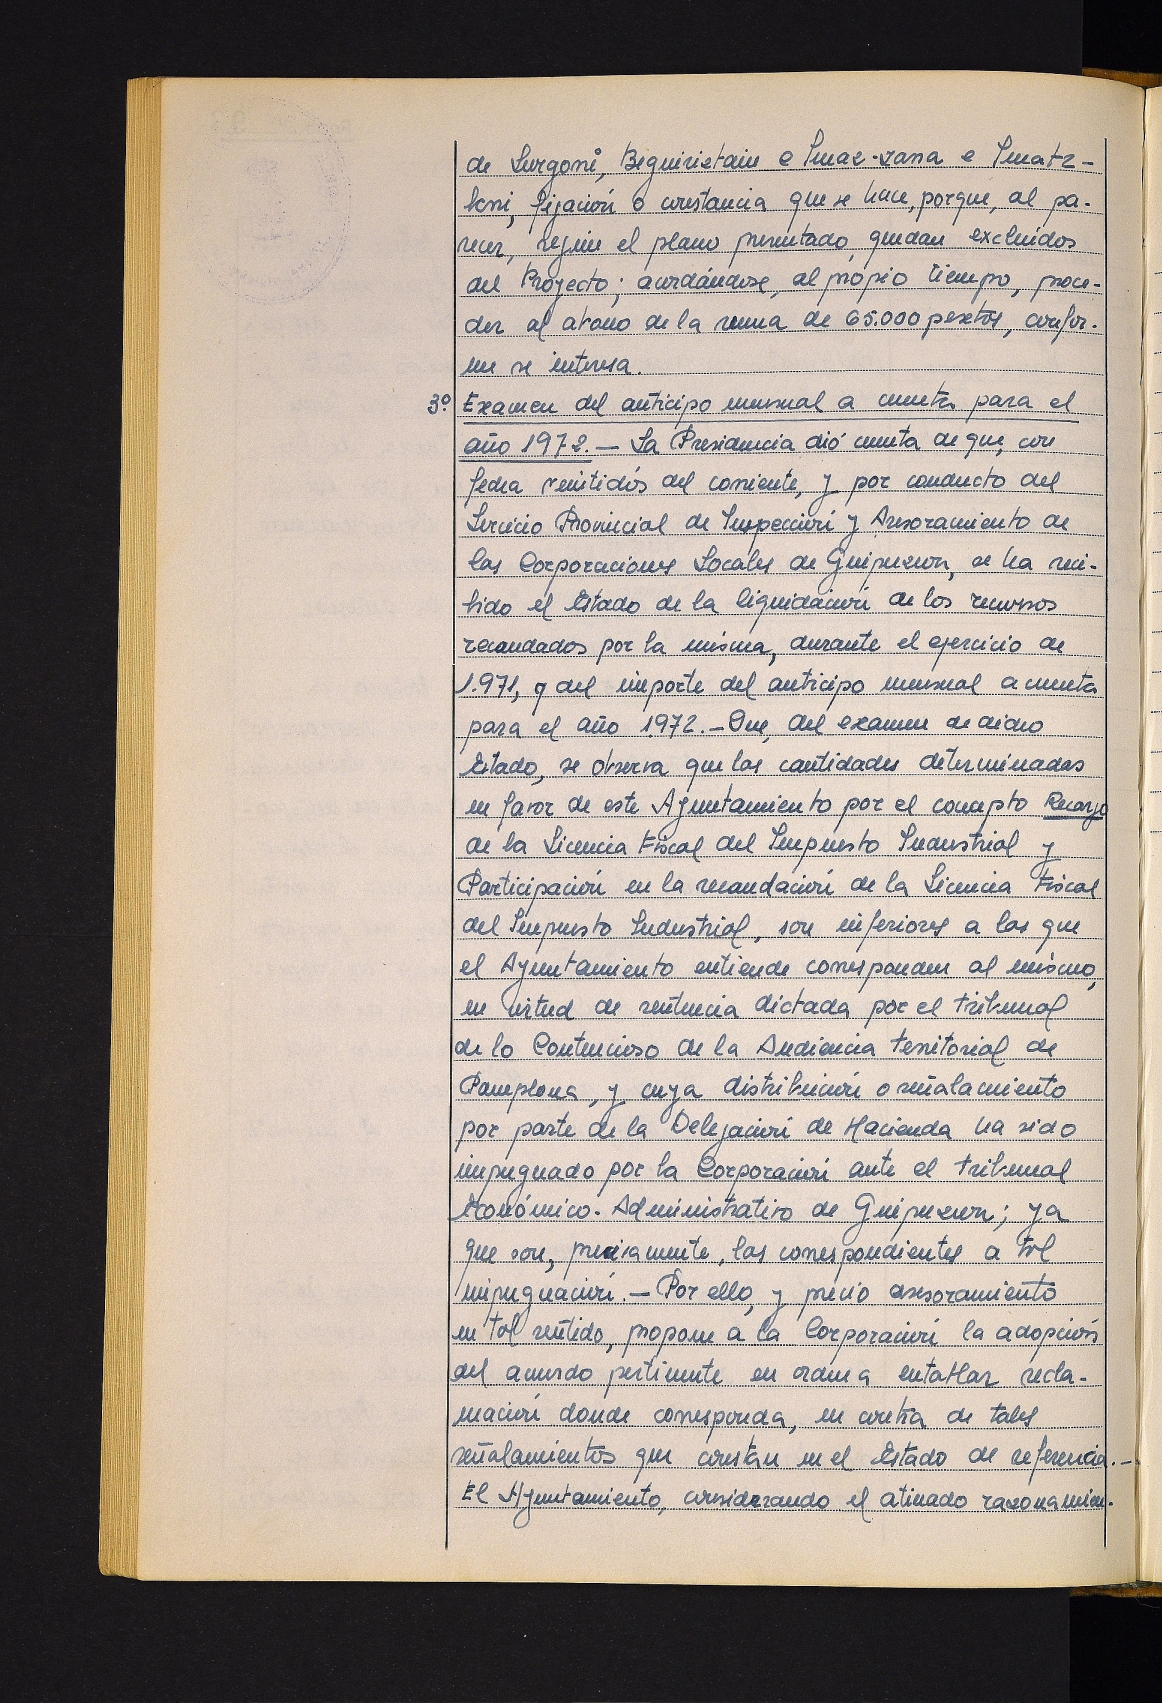 de Lurgorri, Beguiristain e Imaz-zarra e Imatz-
berri, fijación o constancia que se hace, porque, al pa-
recer, según el plano presentado, quedan excluídos
del Proyecto; acordándose, al propio tiempo, proce-
der al abono de la suma de 65.000 pesetas, confor-
me se interesa.
3º Examen del anticipo mensual a cuenta para el
año 1972.- La Presidencia dió cuenta de que, con
fecha veintidós del corriente, y por conducto del
Servicio Provincial de Inspección y Asesoramiento de
las Corporaciones Locales de Guipuzcoa, se ha reci-
bido el Estado de la liquidación de los recursos
recaudados por la misma, durante el ejercicio de
1.971, y del importe del anticipo mensual a cuenta
para el año 1.972.- Que, del examen de dicho
Estado, se observa que las cantidades determinadas
en favor de este Ayuntamiento por el concepto Recargo
de la Licencia Fiscal del Impuesto Industrial y
Participación en la recaudación de la Licencia Fiscal
del Impuesto Industrial, son inferiores a las que
el Ayuntamiento entiende corresponden al mismo,
en virtud de sentencia dictada por el tribunal
de lo Contencioso de la Audiencia territorial de
Pamplona, y cuya distribución o señalamiento
por parte de la Delegación de Hacienda ha sido
impugnado por la Corporación ante el tribunal
Económico-Administrativo de Guipuzcoa; ya
que son, precisamente, las correspondientes a tal
impugnación.- Por ello, y previo asesoramiento
en tal sentido, propone a la Corporación la adopción
del acuerdo pertinente en orden a entablar recla-
mación donde corresponda, en contra de tales
señalamientos que constan en el Estado de referencia.-
El Ayuntamiento, considerando el atinado razonamien-